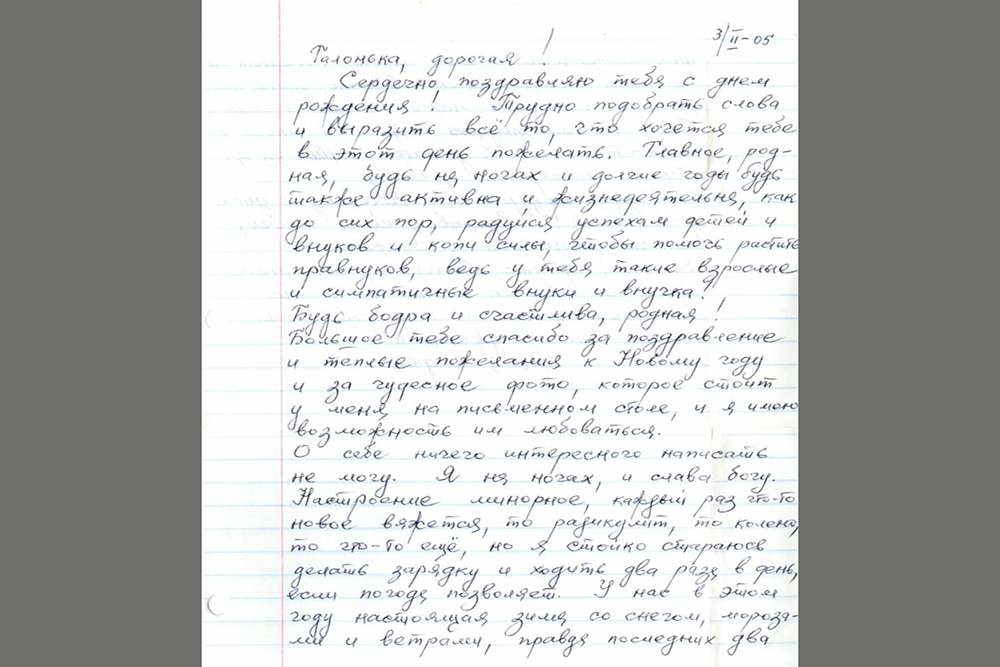 3/II-05
Галонька, дорогая!
Сердечно поздравляю тебя с днем
рождения! Трудно подобрать слова
и выразить всё то, что хочется тебе
в этот день пожелать. Главное, род-
ная, будь на ногах и долгие годы будь
также активна и жизнедеятельна, как
до сих пор, радуйся успехам детей и
внуков и копи силы, чтобы помочь растить
правнуков, ведь у тебя такие взрослые
и симпатичные внуки и внучка!
Будь бодра и счастлива, родная!
Большое тебе спасибо за поздравление
и тёплые пожелания к Новому году
и за чудесное фото, которое стоит
у меня на письменном столе, и я имею
возможность им любоваться.
О себе ничего интересного написать
не могу. Я на ногах, и слава богу.
Настроение минорное, каждый раз что-то
новое вяжется, то радикулит, то колено,
то что-то ещё, но я стойко стараюсь
делать зарядку и ходить два раза в день,
если погода позволяет. У нас в этом
году настоящая зима со снегом, мороза-
ми и ветрами, правда последних два